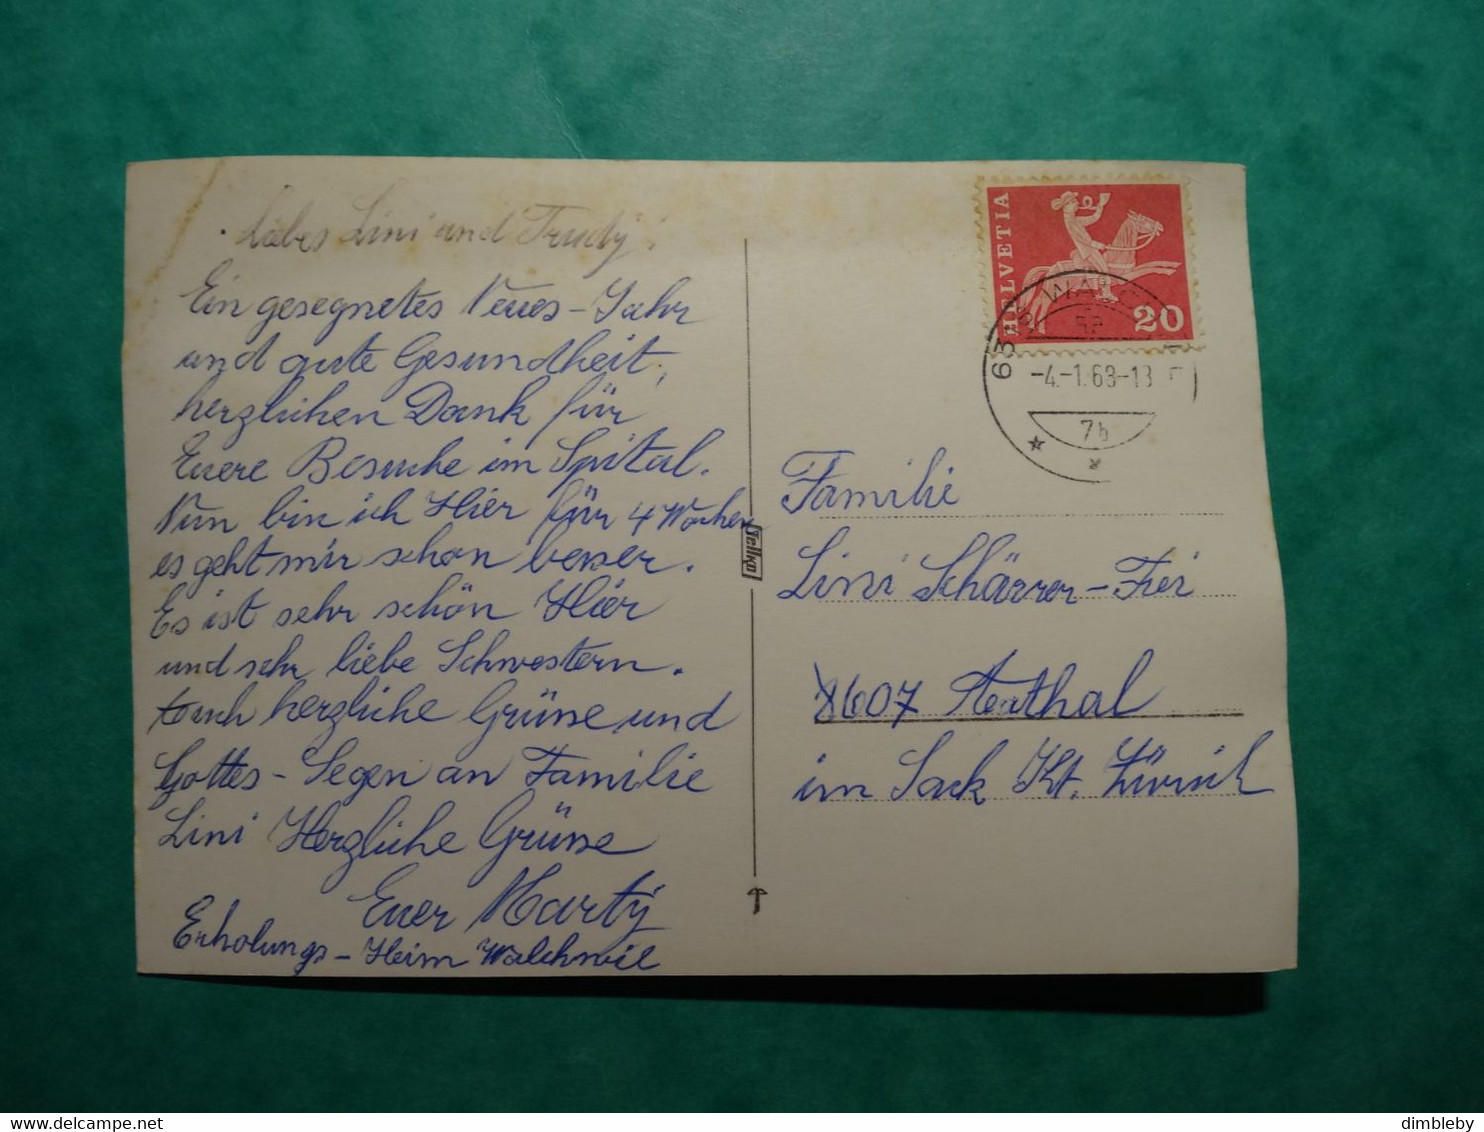 Liebes Lini und Trudy!
Ein gesegnetes Neues-Jahr
und gute Gesundheit,
herzlichen Dank für
Euere Besuche im Spital.
Nun bin ich Hier für 4 Wochen
es geht mir schon besser.
Es ist sehr schön Hier
und sehr liebe Schwestern.
Auch herzliche Grüsse und
Gottes-Segen an Familie
Lini Herzliche Grüsse
Euer Marty
Erholungs-Heim Walchwil
Selka
HELVETIA
20
63
-4.-1.68-13
7b
Familie
Lini Schärrer-Frei
8607 Aathal
im Sack Kt. Zürich
delcampe.net
dimbleby